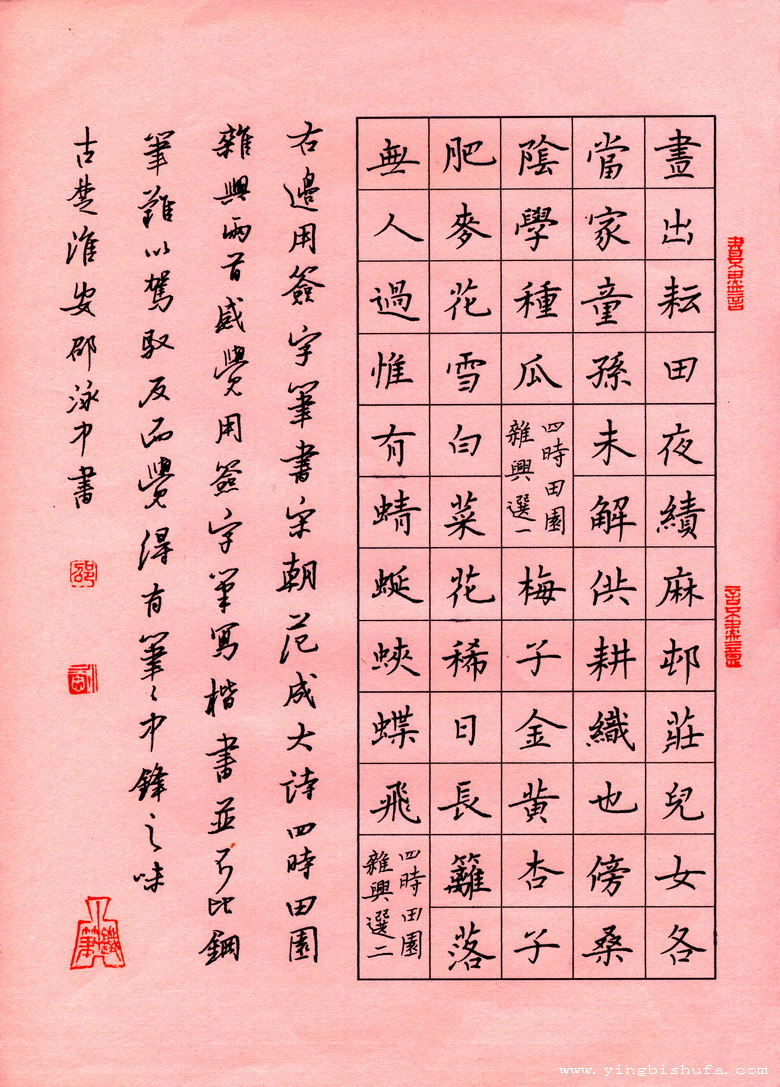 晝出耘田夜績麻邨莊兒女各
當家童孫未解供耕織也傍桑
陰學種瓜
四時田園
雜興選一
梅子金黃杏子
肥麥花雪白菜花稀日長籬落
無人過惟有蜻蜓蛺蝶飛
四時田園
雜興選二
右邊用簽字筆書宋朝范成大詩四時田園
雜興兩首感覺用簽字筆寫楷書並不比鋼
筆難以駕馭反而覺得有筆〻中鋒之味
古楚淮安邵泳中書
www.yingbishufa.com